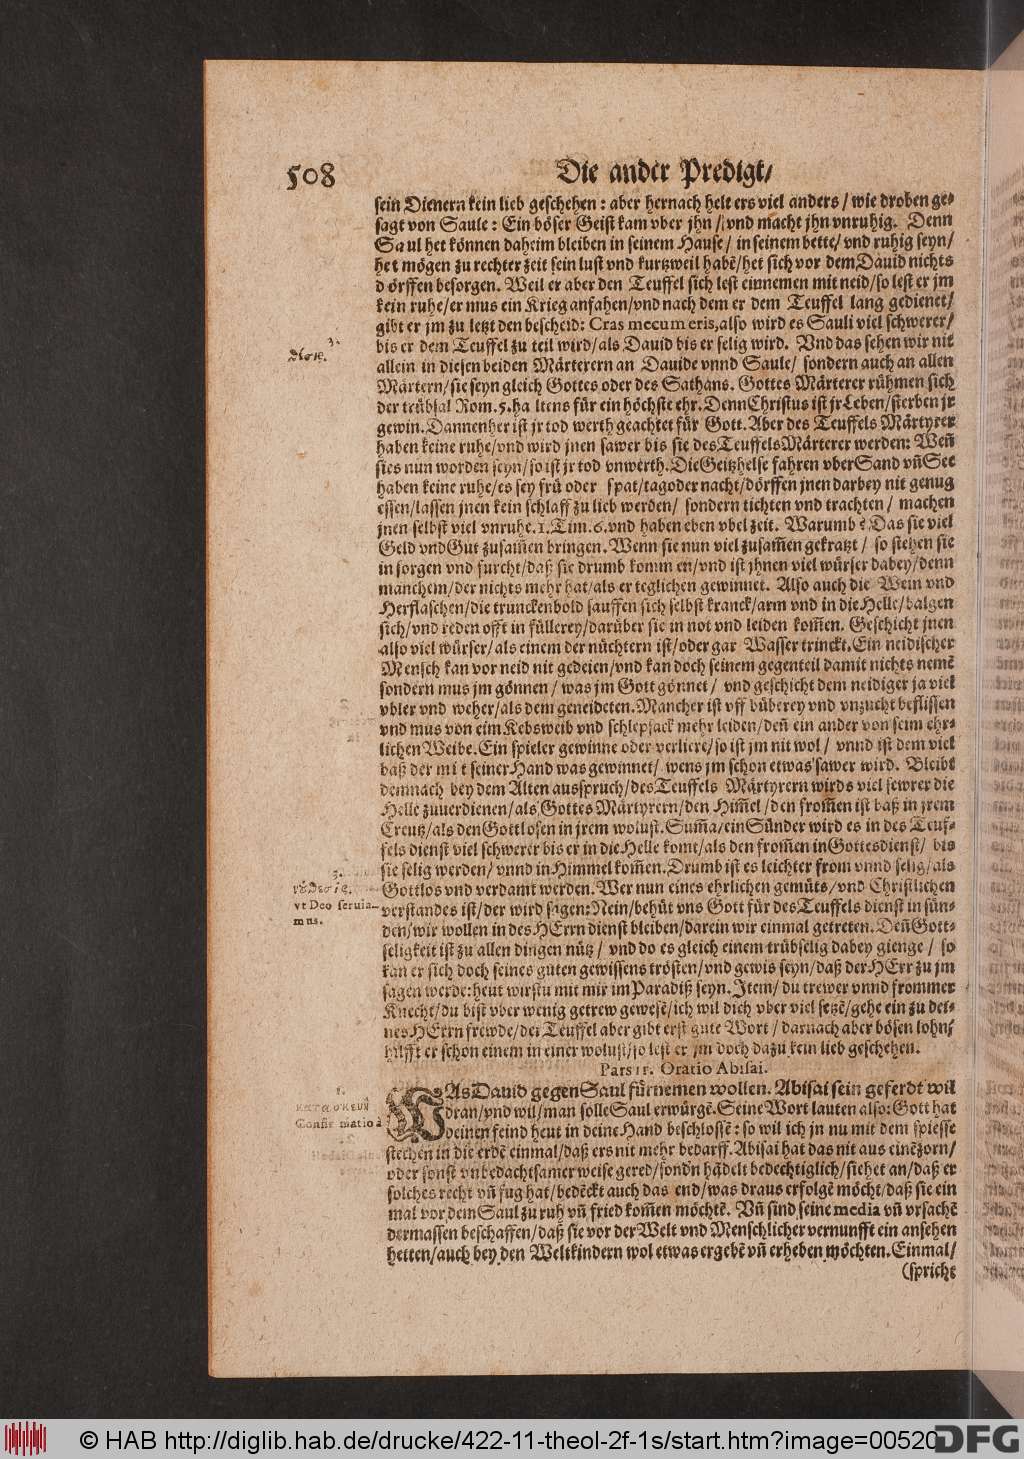 508 Die ander Predigt/
sein Dienern kein lieb geschehen: aber hernach helt ers viel anders/ wie droben ge-
sagt von Saule: Ein böser Geist kam vber jhn/ vnd macht jhn vnruhig. Denn
Saul het können daheim bleiben in seinem Hause/ in seinem bette/ vnd ruhig seyn/
het mögen zu rechter zeit sein lust vnd kurtzweil habē/ het sich vor dem Dauid nichts
dörffen besorgen. Weil er aber den Teuffel sich lest einnemen mit neid/ so lest er jm
kein ruhe/ er mus ein Krieg anfahen/ vnd nach dem er dem Teuffel lang gedienet/
gibt er jm zu letzt den bescheid: Cras mecum eris, also wird es Sauli viel schwerer/
3.
bis er dem Teuffel zu teil wird/ als Dauid bis er selig wird. Vnd das sehen wir nit
allein in diesen beiden Märterern an Dauide vnnd Saule/ sondern auch an allen
Märtern/ sie seyn gleich Gottes oder des Sathans. Gottes Märterer rühmen sich
der trübsal Rom. 5. haltens für ein höchste ehr. Denn Christus ist jr Leben/ sterben jr
gewin. Dannenher ist jr tod werth geachtet für Gott. Aber des Teuffels Märtyrer
haben keine ruhe/ vnd wird jnen sawer bis sie des Teuffels Märterer werden: Weñ
sies nun worden seyn/ so ist jr tod vnwerth. Die Geitzhelse fahren vber Sand vñ See
haben keine ruhe/ es sey frü oder spat/ tag oder nacht/ dörffen jnen darbey nit genug
essen/ lassen jnen kein schlaff zu lieb werden/ sondern tichten vnd trachten/ machen
jnen selbst viel vnruhe. 1. Tim. 6. vnd haben eben vbel zeit. Warumb? Das sie viel
Geld vnd Gut zusam̃en bringen. Wenn sie nun viel zusam̃en gekratzt/ so stehen sie
in sorgen vnd furcht/ daß sie drumb kommen/ vnd ist jhnen viel würser dabey/ denn
manchem/ der nichts mehr hat/ als er teglichen gewinnet. Also auch die Wein vnd
Herflaschen/ die trunckenbold sauffen sich selbst kranck/ arm vnd in die Helle/ balgen
sich/ vnd reden offt in füllerey/ darüber sie in not vnd leiden kom̃en. Geschicht jnen
also viel würser/ als einem der nüchtern ist/ oder gar Wasser trinckt. Ein neidischer
Mensch kan vor neid nit gedeien/ vnd kan doch seinem gegenteil damit nichts nemē
sondern mus jm gönnen/ was jm Gott gönnet/ vnd geschicht dem neidiger ja viel
vbler vnd weher/ als dem geneideten. Mancher ist vff büberey vnd vnzucht beflissen
vnd mus von eim Kebsweib vnd schlepsack mehr leiden/ deñ ein ander von seim ehr-
lichen Weibe. Ein spieler gewinne oder verliere/ so ist jm nit wol/ vnnd ist dem viel
baß der mit seiner Hand was gewinnet/ wens jm schon etwas sawer wird. Bleibt
demnach bey dem Alten ausspruch/ des Teuffels Märtyrern wirds viel sewrer die
Helle zuuerdienen/ als Gottes Märtyrern/ den Him̃el/ den from̃en ist baß in jrem
Creutz/ als den Gottlosen in jrem wolust. Sum̃a/ ein Sünder wird es in des Teuf-
fels dienst viel schwerer bis er in die Helle komt/ als den from̃en in Gottesdienst/ bis
3.
sie selig werden/ vnnd in Himmel kom̃en. Drumb ist es leichter from vnnd selig/ als
Gottlos vnd verdamt werden. Wer nun eines ehrlichen gemüts/ vnd Christlichen
vt Deo seruia-
mus.
verstandes ist/ der wird sagen: Nein/ behüt vns Gott für des Teuffels dienst in sün-
den/ wir wollen in des HErrn dienst bleiben/ darein wir einmal getreten. Deñ Gott-
seligkeit ist zu allen dingen nütz/ vnd do es gleich einem trübselig dabey gienge/ so
kan er sich doch seines guten gewissens trösten/ vnd gewis seyn/ daß der HErr zu jm
sagen werde: heut wirstu mit mir im Paradiß seyn. Item/ du trewer vnnd frommer
Knecht/ du bist vber wenig getrew gewesē/ ich wil dich vber viel setzē/ gehe ein zu dei-
nes HErrn frewde/ der Teuffel aber gibt erst gute Wort/ darnach aber bösen lohn/
hilfft er schon einem in einer wolust/ so lest er jm doch dazu kein lieb geschehen.
Pars II. Oratio Abisai.
1.
κατασκευὴ
Confirmatio à
WAs Dauid gegen Saul fürnemen wollen. Abisai sein geferdt wil
dran/ vnd wil/ man solle Saul erwürgē. Seine Wort lauten also: Gott hat
deinen feind heut in deine Hand beschlossē: so wil ich jn nu mit dem spiesse
stechen in die erdē einmal/ daß ers nit mehr bedarff. Abisai hat das nit aus einē zorn/
oder sonst vnbedachtsamer weise gered/ sondn hādelt bedechtiglich/ siehet an/ daß er
solches recht vñ fug hat/ bedēckt auch das end/ was draus erfolgē möcht/ daß sie ein
mal vor dem Saul zu ruh vñ fried kom̃en möchtē. Vñ sind seine media vñ vrsachē
dermassen beschaffen/ daß sie vor der Welt vnd Menschlicher vernunfft ein ansehen
hetten/ auch bey den Weltkindern wol etwas ergebē vñ erheben möchten. Einmal/
(spricht
© HAB http://diglib.hab.de/drucke/422-11-theol-2f-1s/start.htm?image=00520
DFG